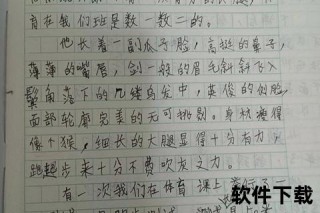 育在我们班是数一数二的。
他长着一副瓜子脸，高挺的鼻子，
薄薄的嘴唇，剑一般的眉毛斜斜飞入
鬓角落下的几缕乌发中，英俊的侧脸，
面部轮廓完美的无可挑剔。身材瘦得
像个猴，细长的大腿显得十分有力，
跑起步来十分不费吹灰之力。
有一次我们在体育课上
软件下载